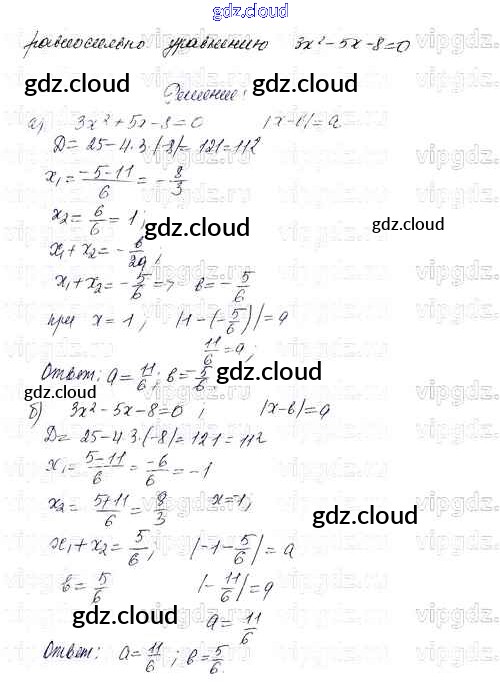 gdz.cloud
равносильно уравнению 3x²-5x-8=0
gdz.cloud Решение: gdz.cloud
а) 3x²+5x-8=0 |x-в|=a
D= 25-4·3·(-8)= 121=11²
x₁= (-5-11)/6 = -8/3
x₂= 6/6 = 1;
gdz.cloud gdz.cloud
x₁+x₂= -в/2a;
x₁+x₂= -5/6 => в= -5/6
при x=1; |1-(-5/6)|=a
11/6=a;
Ответ: a= 11/6; в= -5/6.
gdz.cloud gdz.cloud
б) 3x²-5x-8=0; |x-в|=a
D= 25-4·3·(-8)=121=11²
x₁= (5-11)/6 = -6/6 = -1
x₂= (5+11)/6 = 8/3 x=-1;
gdz.cloud
x₁+x₂= 5/6; |-1-5/6|=a
в= 5/6 |-11/6|=a
gdz.cloud a= 11/6
Ответ: a= 11/6; в= 5/6.
gdz.cloud